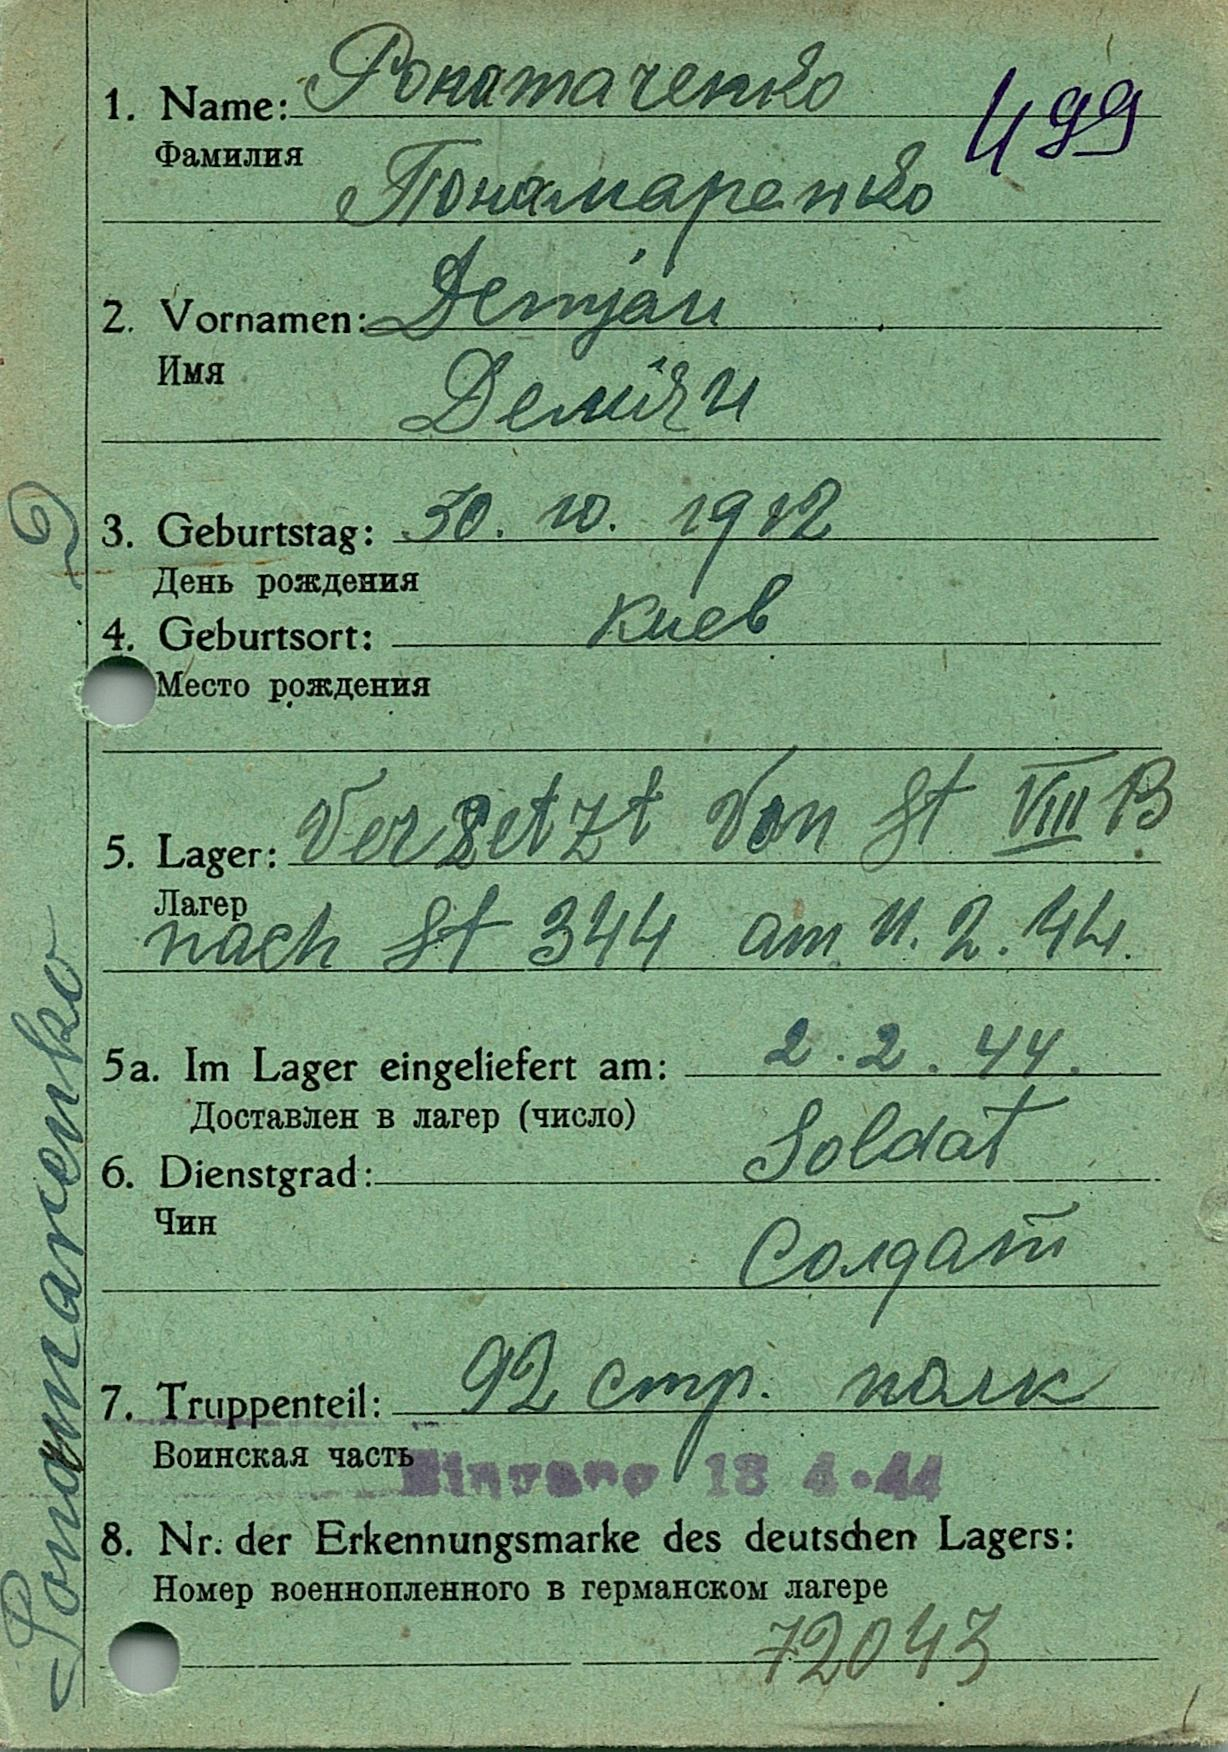 1. Name: Ponamarenko
499
Фамилия
Понамаренко
2. Vornamen: Demjan
Имя
Демiян
3. Geburtstag: 30. 10. 1912
День рождения
4. Geburtsort: Киев
Место рождения
5. Lager: Versetzt von St VIII B
Лагер
nach St 344 am 11. 2. 44.
5a. Im Lager eingeliefert am: 2. 2. 44.
Доставлен в лагер (число)
6. Dienstgrad: Soldat
Чин
Солдат
7. Truppenteil: 92 стр. полк
Воинская часть
Eingang 18 4.44
8. Nr. der Erkennungsmarke des deutschen Lagers:
Номер военнопленного в германском лагере
72043
Ponomarenko